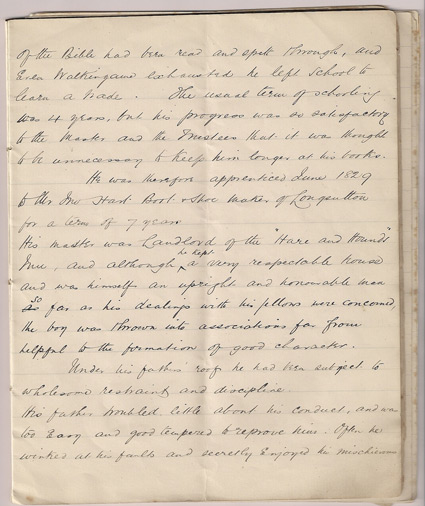 of the Bible had been read and spelt through, and
Even Walkingame Exhausted he left School to
learn a trade. The usual term of schooling
was 4 years, but his progress was so satisfactory
to the Master and the Trustees that it was thought
to be unnecessary to keep him longer at his books.
He was therefore apprenticed June 1829
to Mr Jno Hart Boot & Shoe maker of Longsutton
for a term of 7 years
His master was Landlord of the "Hare and Hounds"
Inn, and although he kept a very respectable house
and was himself an upright and honourable man
so far as his dealings with his fellows were concerned,
the boy was thrown into associations far from
helpful to the formation of good character.
Under his father's roof he had been subject to
wholesome restraint, and discipline
His father troubled little about his conduct, and was
too Easy and good tempered to reprove him. Often he
winked at his faults and secretly Enjoyed his mischievous